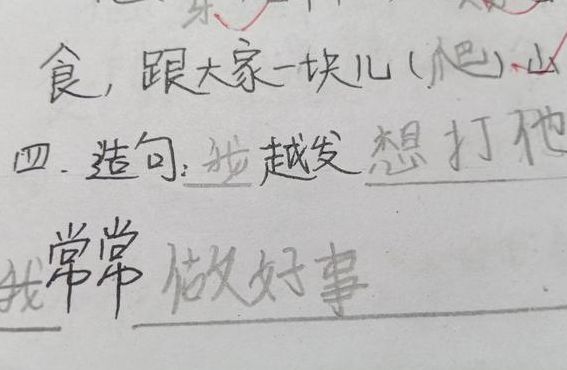 食，跟大家一块儿（爬）山
四．造句：我越发想打他
我常常做好事